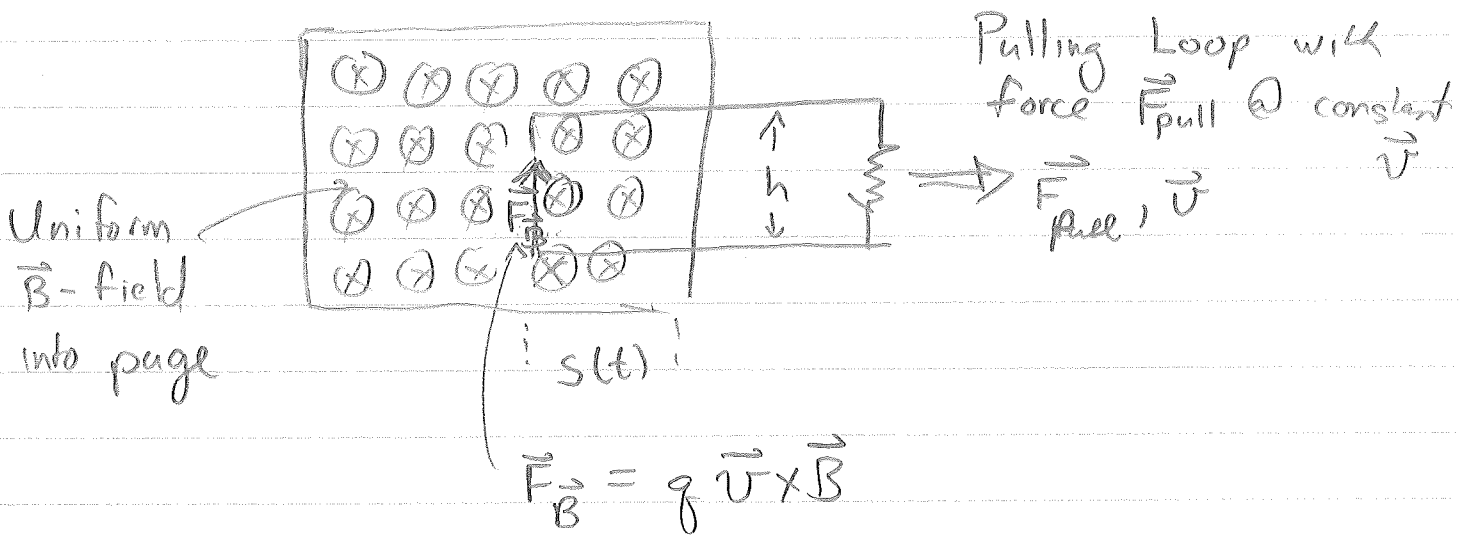 Pulling Loop with
force F⃗pull @ constant
v⃗
F⃗pull, v⃗
h
Uniform
B⃗-field
into page
F⃗B
s(t)
F⃗B⃗ = q v⃗ × B⃗